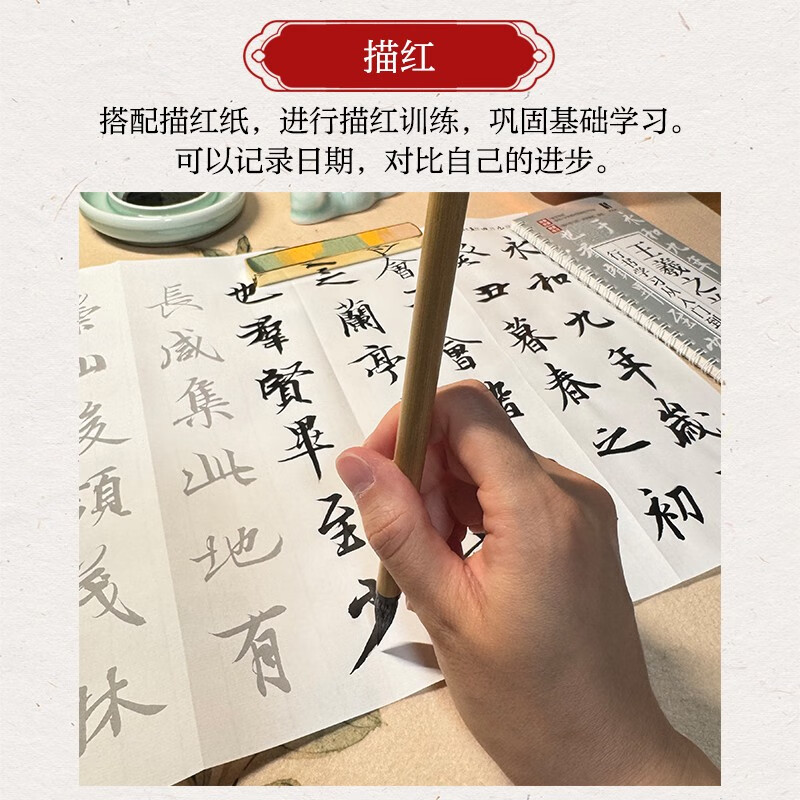 描红
搭配描红纸，进行描红训练，巩固基础学习。
可以记录日期，对比自己的进步。
永和九年歲
丑暮春之初
會
之蘭亭
也羣賢畢至少
長咸集此地有
崇山峻領茂林
王羲之
行书学习从入门到